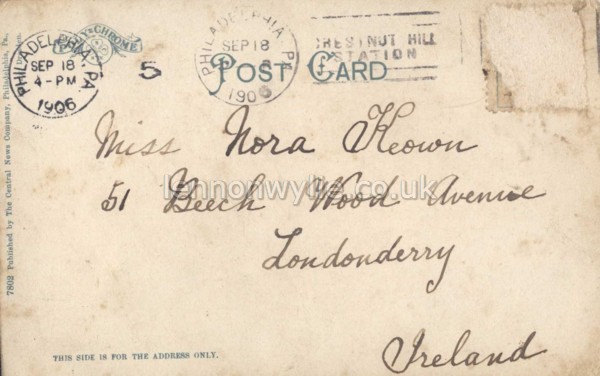 POLY-CHROME
PHILADELPHIA, PA.
SEP 18
4-PM
1906
5
PHILADELPHIA, PA.
SEP 18
190
CHESTNUT HILL
STATION
POST CARD
Miss Nora Keown
51 Beech Wood Avenue
lennonwylie.co.uk
Londonderry
Ireland
7802 Published by The Central News Company, Philadelphia, Pa.
THIS SIDE IS FOR THE ADDRESS ONLY.